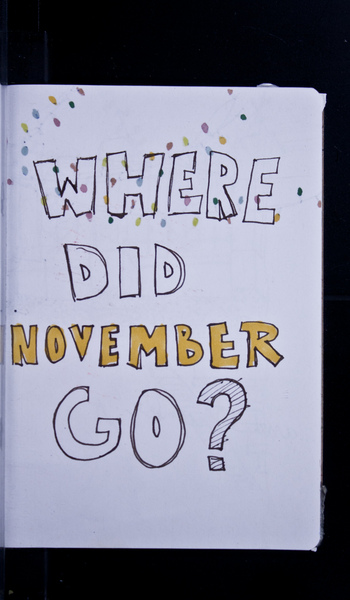 WHERE
DID
NOVEMBER
GO?